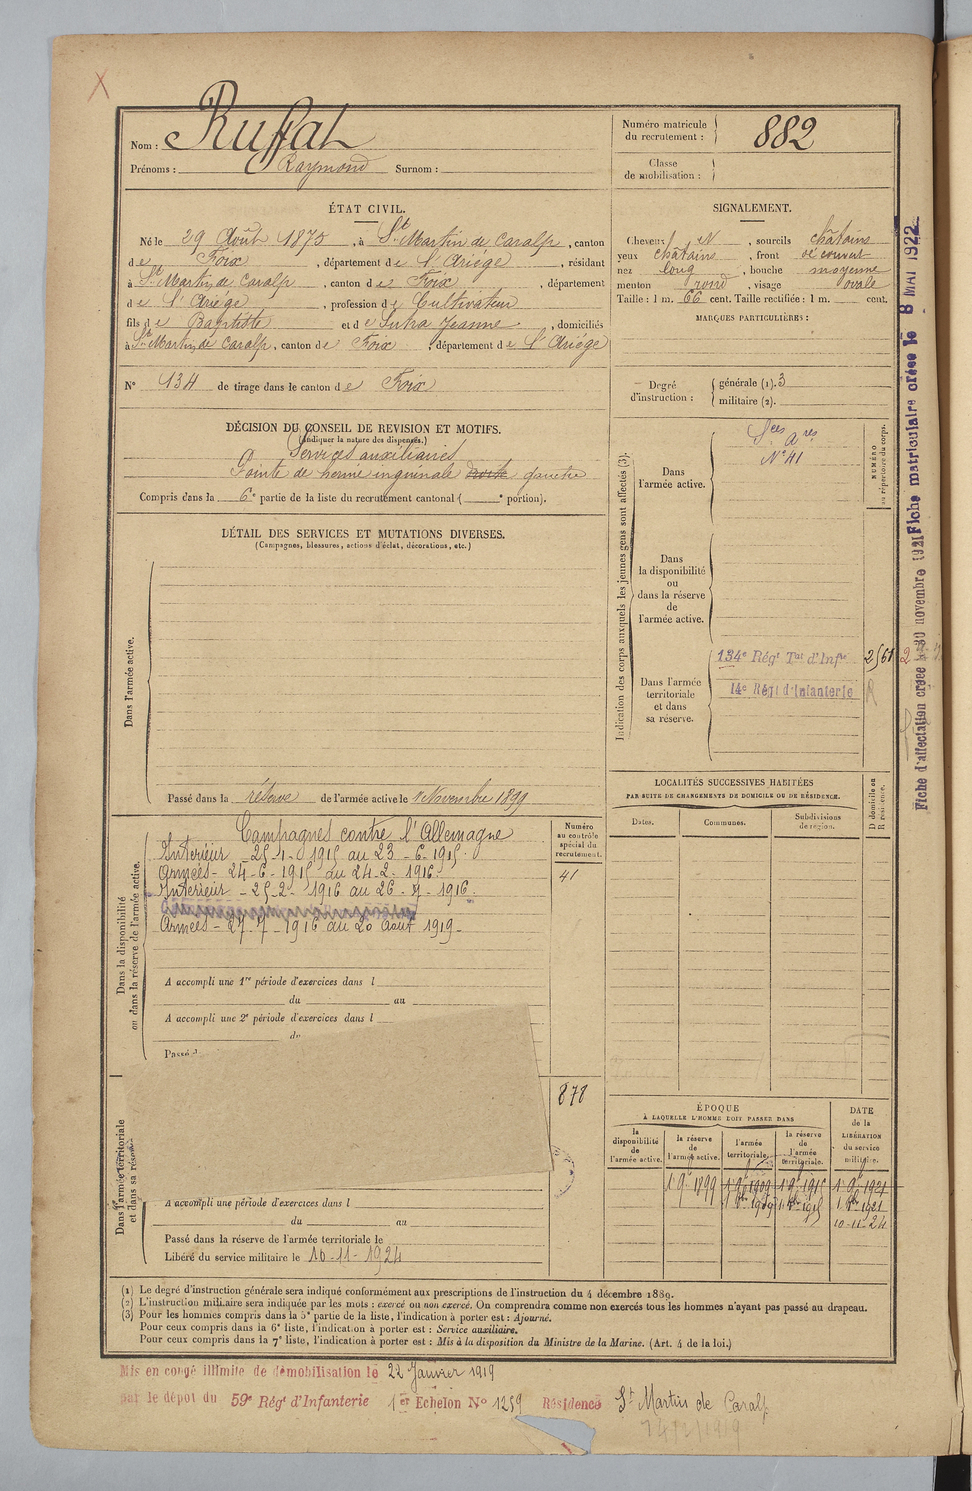 Nom : Ruffat
Prénoms : Raymond Surnom :
Numéro matricule du recrutement : 882
Classe de mobilisation :
ÉTAT CIVIL.
Né le 29 Août 1875, à St Martin de Caralp, canton
de Foix, département de l'Ariège, résidant
à St Martin de Caralp, canton de Foix, département
de l'Ariège, profession de Cultivateur
fils de Baptiste et de Sutra Jeanne, domiciliés
à St Martin de Caralp, canton de Foix, département de l'Ariège
N° 134 de tirage dans le canton de Foix
SIGNALEMENT.
Cheveux N, sourcils châtains
yeux châtains, front découvert
nez long, bouche moyenne
menton rond, visage ovale
Taille : 1 m. 66 cent. Taille rectifiée : 1 m. cent.
MARQUES PARTICULIÈRES :
Degré d'instruction : générale (1). 3
militaire (2).
DÉCISION DU CONSEIL DE REVISION ET MOTIFS.
(Indiquer la nature des dispenses.)
Services auxiliaires
Pointe de hernie inguinale droite gauche
Compris dans la 6e partie de la liste du recrutement cantonal ( e portion).
DÉTAIL DES SERVICES ET MUTATIONS DIVERSES.
(Campagnes, blessures, actions d'éclat, décorations, etc.)
Dans l'armée active.
Passé dans la réserve de l'armée active le 1 Novembre 1899
Indication des corps auxquels les jeunes gens sont affectés (3).
NUMÉRO au répertoire du corps.
Dans l'armée active.
Sces Ares
N° 41
Dans la disponibilité ou dans la réserve de l'armée active.
Dans l'armée territoriale et dans sa réserve.
134e Régt Tal d'Infie
2561
14e Régt d'Infanterie
R
LOCALITÉS SUCCESSIVES HABITÉES
PAR SUITE DE CHANGEMENTS DE DOMICILE OU DE RÉSIDENCE.
D domicile ou R résidence.
Dates.
Communes.
Subdivisions de région.
Dans la disponibilité ou dans la réserve de l'armée active.
Numéro au contrôle spécial du recrutement.
41
Campagnes contre l'Allemagne
Intérieur - 25-4- 1915 au 23-6-1915.
Armées - 24-6-1915 au 24-2-1916.
Intérieur - 25-2-1916 au 26-7-1916.
Armées - 27-7-1916 au 20 Août 1919-
A accompli une 1re période d'exercices dans l
du au
A accompli une 2e période d'exercices dans l
du
Passé
Dans l'armée territoriale et dans sa réserve
878
A accompli une période d'exercices dans l
du au
Passé dans la réserve de l'armée territoriale le
Libéré du service militaire le 10-11-1924
ÉPOQUE
À LAQUELLE L'HOMME DOIT PASSER DANS
DATE de la LIBÉRATION du service militaire.
la disponibilité de l'armée active.
la réserve de l'armée active.
l'armée territoriale.
la réserve de l'armée territoriale.
1 9e 1899 1 9e 1909 1 9e 1915 1 9e 1921
10-11-24
(1) Le degré d'instruction générale sera indiqué conformément aux prescriptions de l'instruction du 4 décembre 1889.
(2) L'instruction militaire sera indiquée par les mots : exercé ou non exercé. On comprendra comme non exercés tous les hommes n'ayant pas passé au drapeau.
(3) Pour les hommes compris dans la 5e partie de la liste, l'indication à porter est : Ajourné.
Pour ceux compris dans la 6e liste, l'indication à porter est : Service auxiliaire.
Pour ceux compris dans la 7e liste, l'indication à porter est : Mis à la disposition du Ministre de la Marine. (Art. 4 de la loi.)
Mis en congé illimité de démobilisation le 22 Janvier 1919
par le dépôt du 59e Régt d'Infanterie 1er Echelon N° 1259 Résidence St Martin de Caralp
Fiche matriculaire créée le 8 MAI 1922
Fiche d'affectation créée le 30 novembre 1921